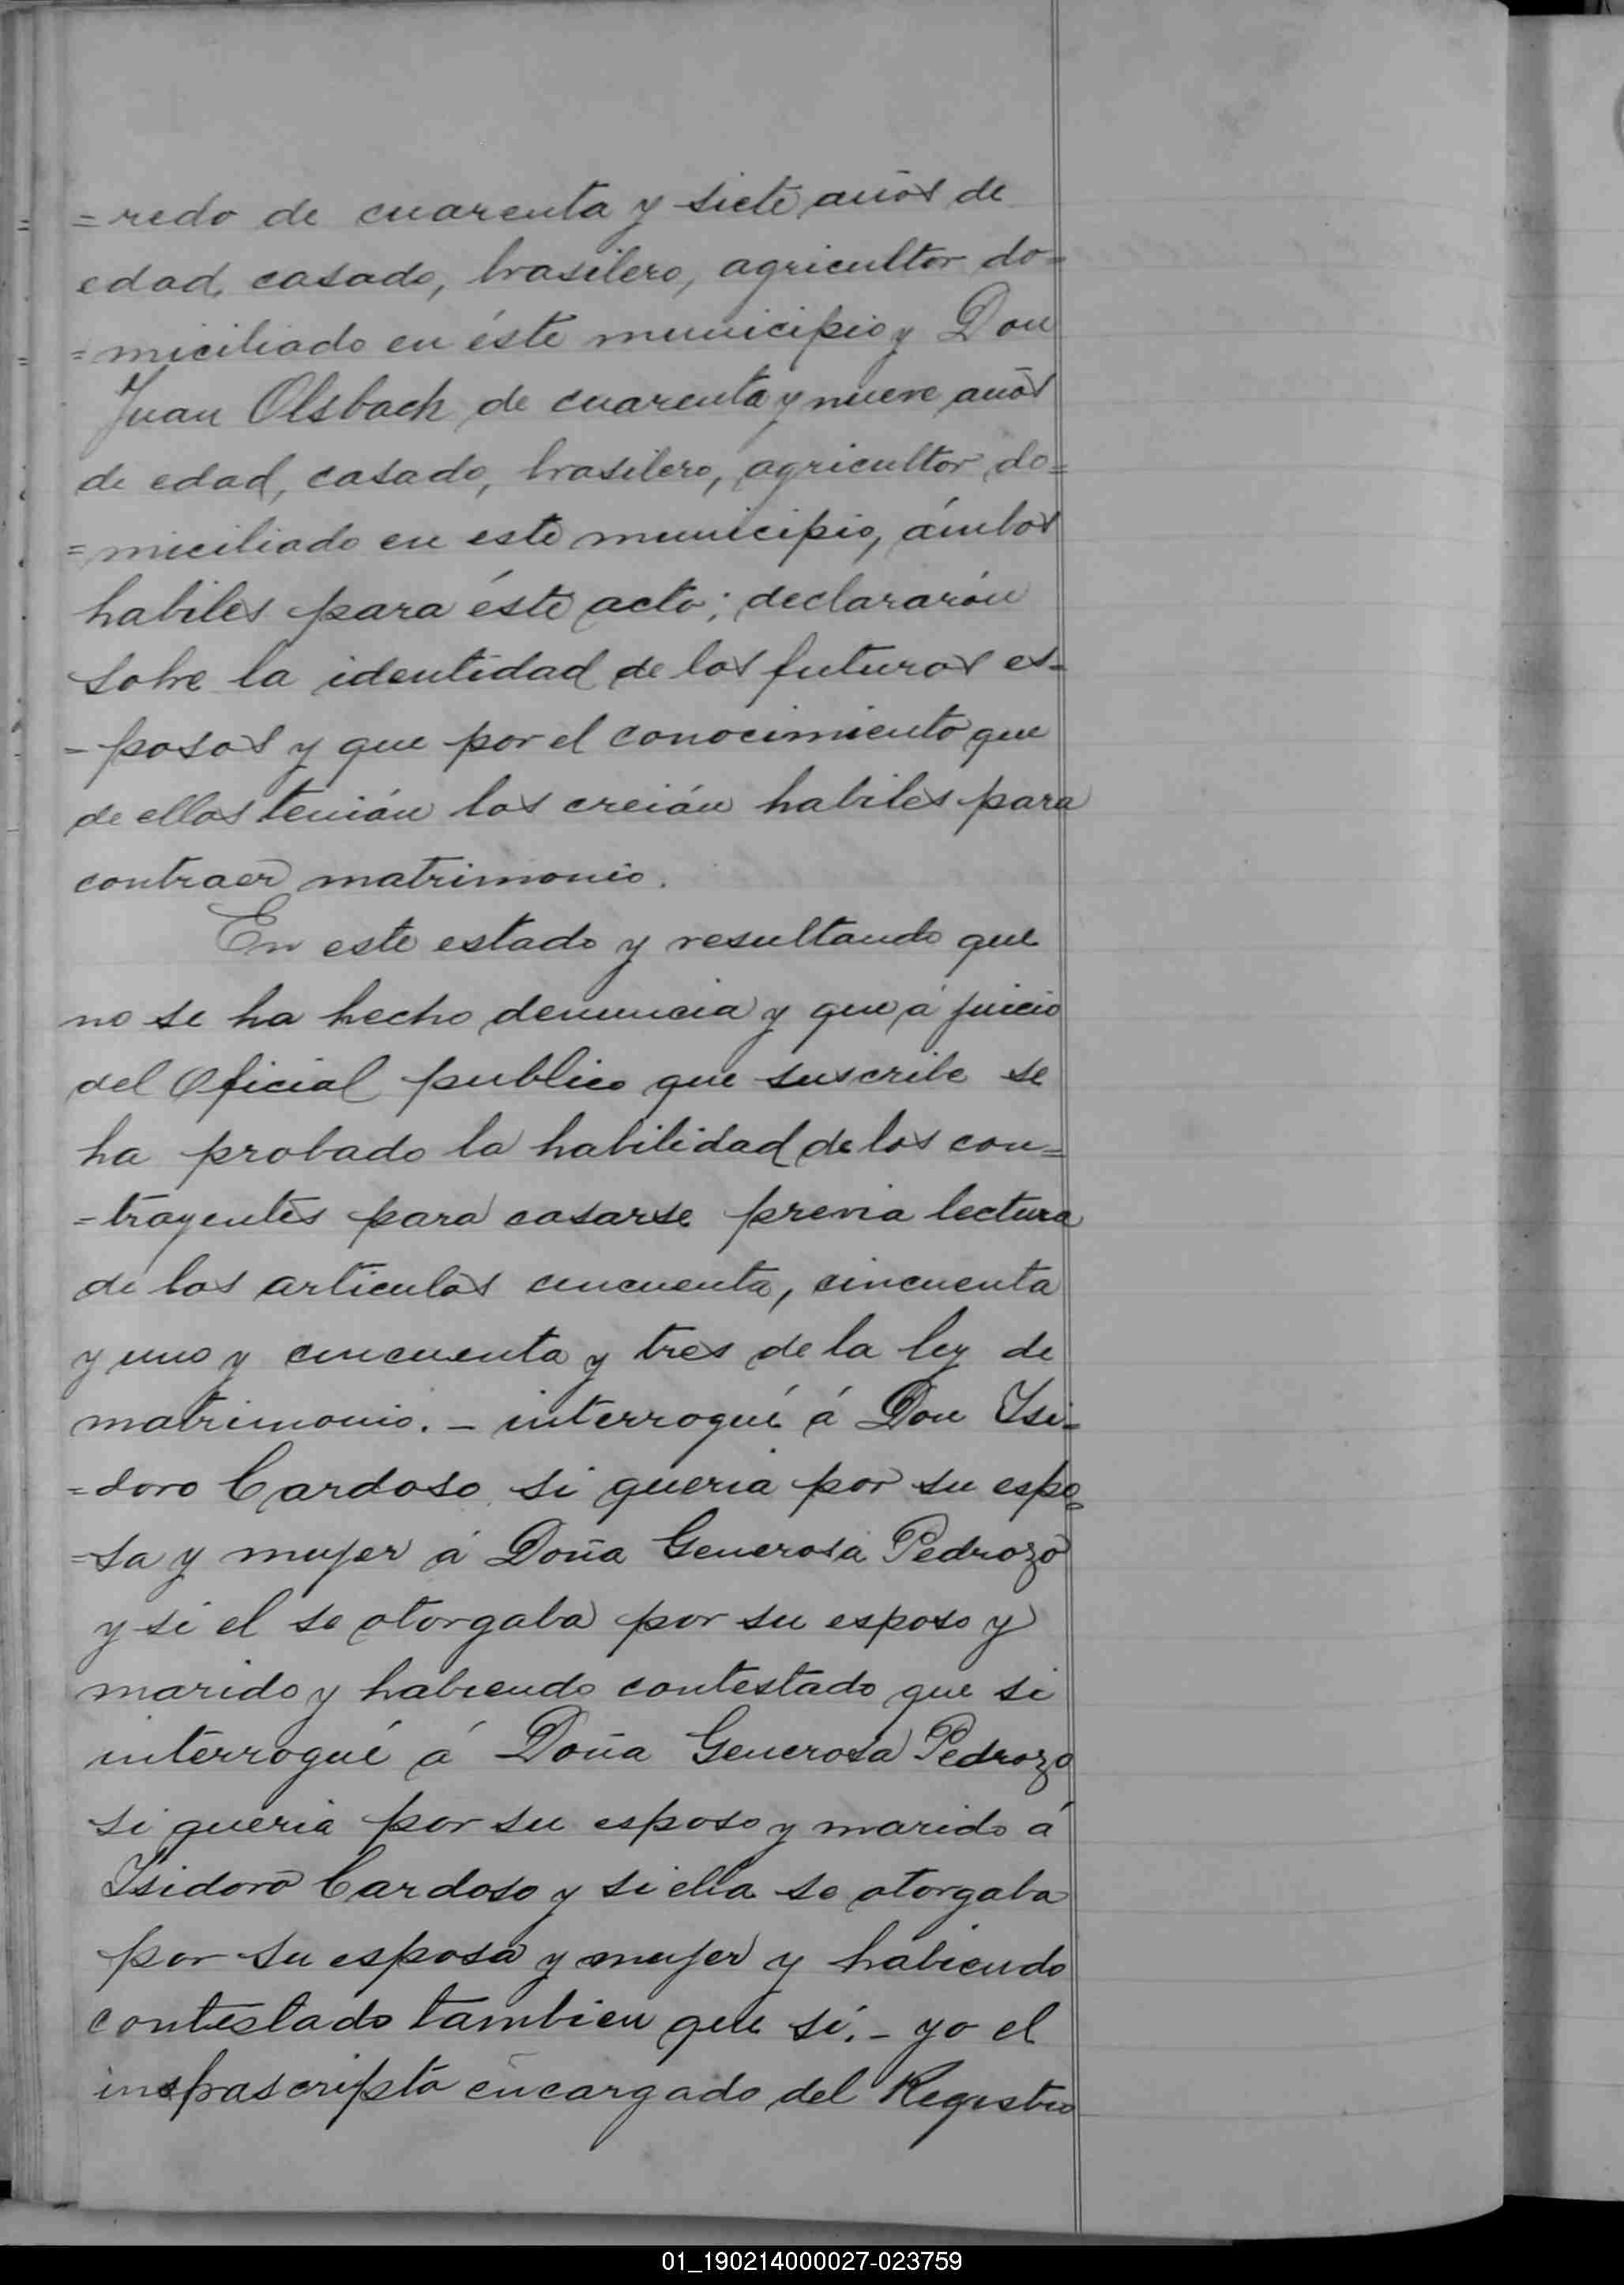 =redo de cuarenta y siete años de
edad, casado, brasilero, agricultor do=
=miciliado en éste municipio y Don
Juan Olsback de cuarenta y nueve años
de edad, casado, brasilero, agricultor do=
=miciliado en este municipio, ámbos
habiles para éste acto; declararón
sobre la identidad de los futuros es-
-posos y que por el conocimiento que
de ellos tenián los creián habiles para
contraer matrimonio.
En este estado y resultando que
no se ha hecho denuncia y que á juicio
del Oficial publico que suscribe se
ha probado la habilidad de los con=
=trayentes para casarse previa lectura
de los articulos cincuenta, cincuenta
y uno y cincuenta y tres de la ley de
matrimonio. - interrogué á Don Isi-
=doro Cardoso si queria por su espo=
=sa y mujer á Doña Generosa Pedrozo
y si el se otorgaba por su esposo y
marido y habiendo contestado que si
interrogué á Doña Generosa Pedrozo
si queria por su esposo y marido á
Isidoro Cardoso y si ella se otorgaba
por su esposa y mujer y habiendo
contestado tambien que sí. - yo el
infrascripto encargado del Registro
01_190214000027-023759